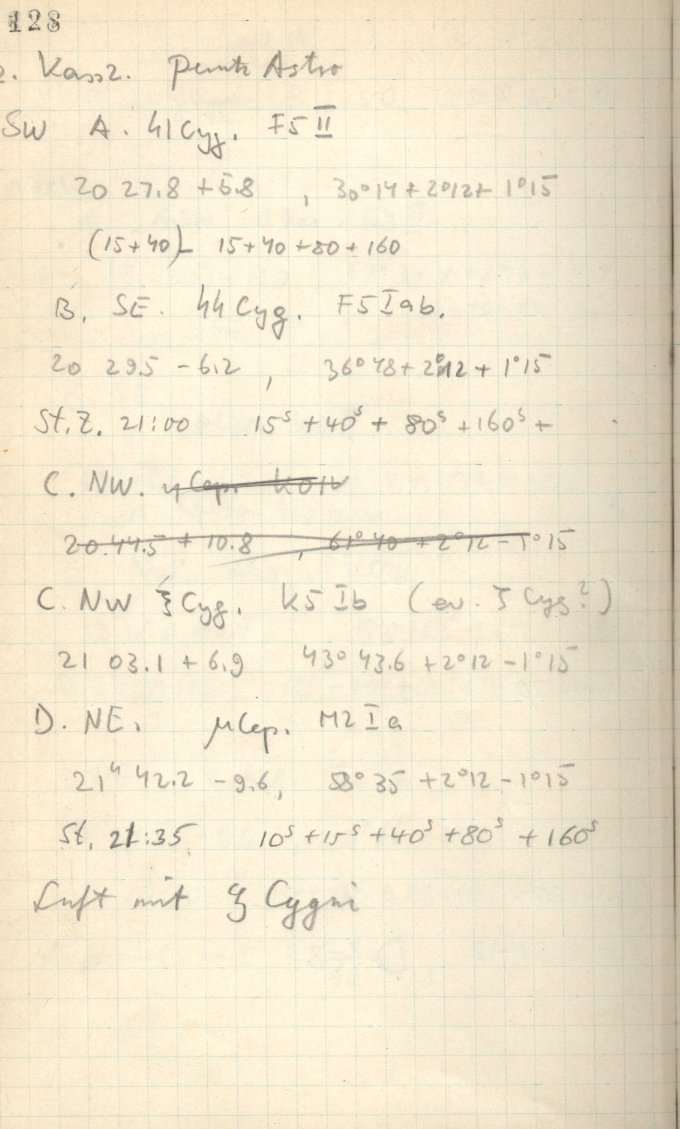 128
2. Kass2. Punkt Astro
SW A. 41 Cyg. F5 II
20 27.8 + 5.8 , 30°14 + 2°12 + 1°15
(15+40) – 15+40+80+160
B. SE. 44 Cyg. F5 Iab.
20 29.5 – 6.2 , 36°48 + 2°12 + 1°15
St.Z. 21:00 15ˢ + 40ˢ + 80ˢ + 160ˢ +
C. NW. η Cep. K0 IV
20.44.5 + 10.8 , 61°40 + 2°12 – 1°15
C. NW ξ Cyg. K5 Ib (ev. ζ Cyg?)
21 03.1 + 6.9 43°43.6 + 2°12 – 1°15
D. NE. μ Cep. M2 Ia
21ʰ 42.2 – 9.6, 58°35 + 2°12 – 1°15
St. 21:35 10ˢ + 15ˢ + 40ˢ + 80ˢ + 160ˢ
Luft mit ξ Cygni